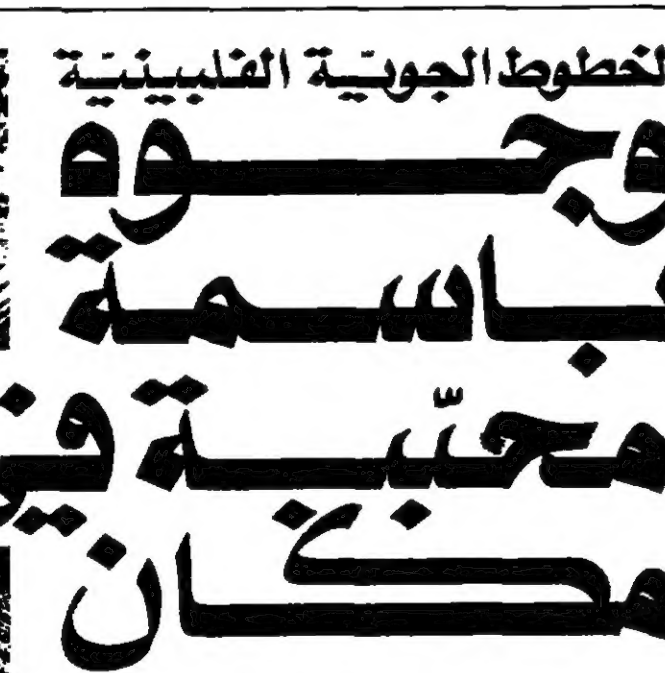 لخطوط الجويّة الفلبينيّة
وجوه
باسمة
محبّبة في
مكان